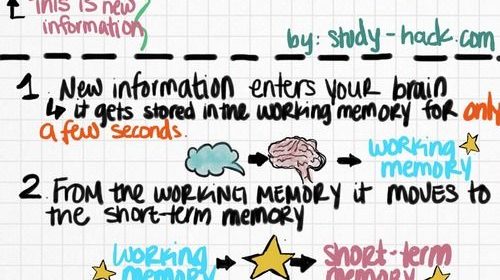 This is new
information
by: study-hack.com
1. New information enters your brain
↳ it gets stored in the working memory for only
a few seconds.
working
memory
2. From the working memory it moves to
the short-term memory
working
memory
short-term
memory